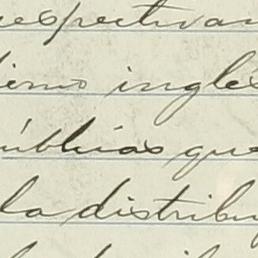 respectivam
ierno inglés
úblicas que
la distribu